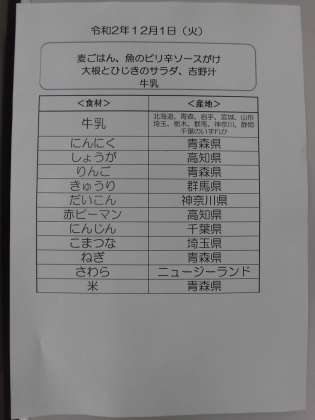 令和2年12月1日（火）
麦ごはん、魚のピリ辛ソースがけ
大根とひじきのサラダ、吉野汁
牛乳
＜食材＞ ＜産地＞
牛乳 北海道、青森、岩手、宮城、山形
埼玉、栃木、群馬、神奈川、静岡
千葉のいずれか
にんにく 青森県
しょうが 高知県
りんご 青森県
きゅうり 群馬県
だいこん 神奈川県
赤ピーマン 高知県
にんじん 千葉県
こまつな 埼玉県
ねぎ 青森県
さわら ニュージーランド
米 青森県